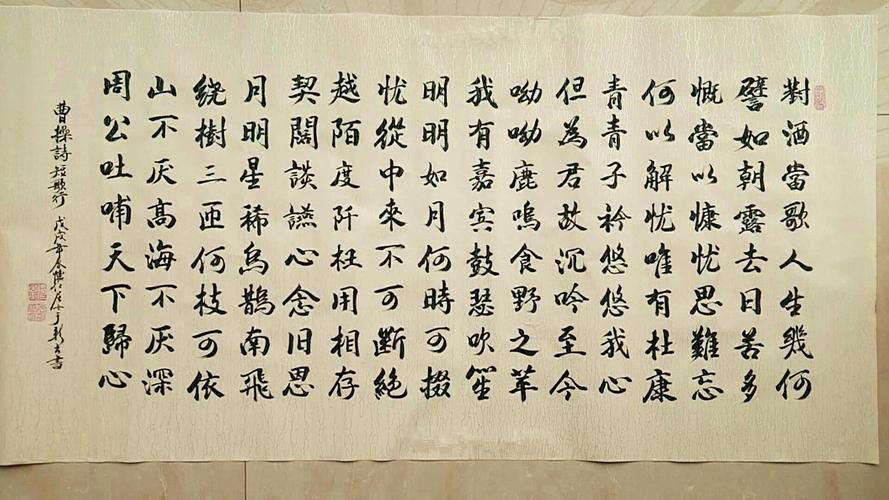 對酒當歌人生幾何
譬如朝露去日苦多
慨當以慷忧思難忘
何以解忧唯有杜康
青青子衿悠悠我心
但為君故沉吟至今
呦呦鹿鳴食野之苹
我有嘉宾鼓瑟吹笙
明明如月何時可掇
忧從中來不可斷絕
越陌度阡枉用相存
契闊談讌心念旧恩
月明星稀烏鵲南飛
绕樹三匝何枝可依
山不厌高海不厌深
周公吐哺天下歸心
曹操詩短歌行 戊戌年 書